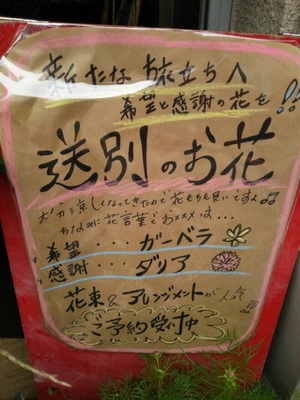 新たな旅立ちへ
希望と感謝の花を!!
送別のお花
だいぶ涼しくなってきたので花もちも良いですよ♫
ちなみに花言葉でおススメは…
希望・・・ガーベラ
感謝・・・ダリア
花束&アレンジメントが人気!!
ご予約受付中